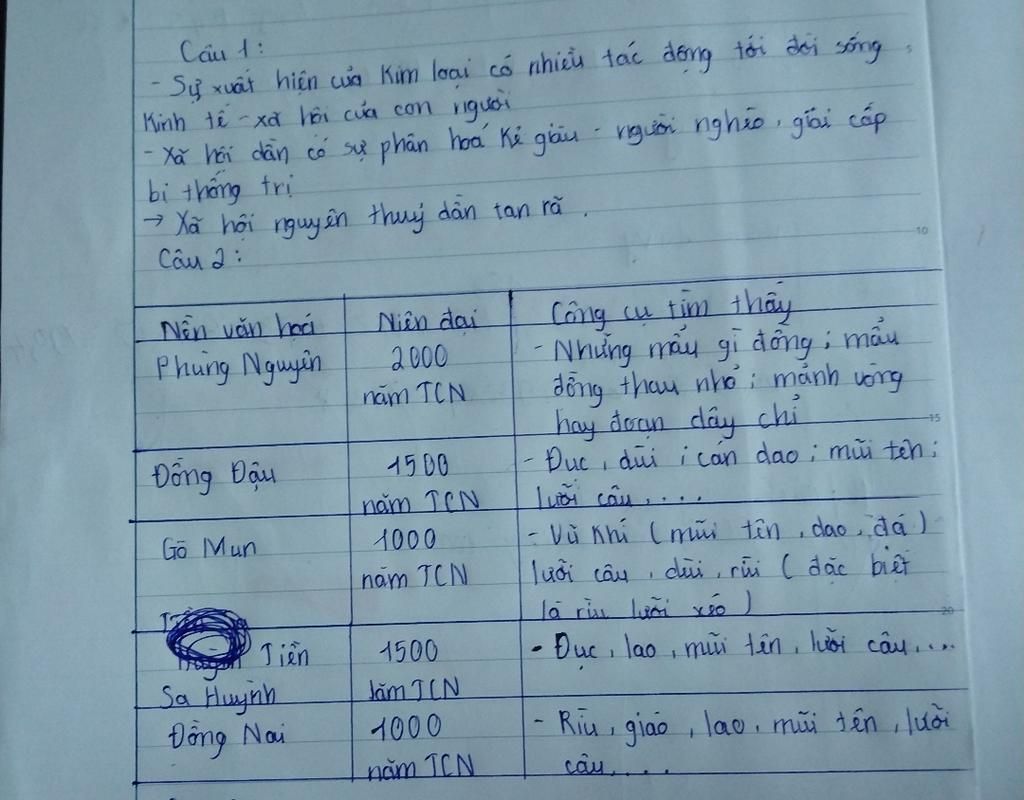 Câu 1:
- Sự xuất hiện của Kim loại có nhiều tác động tới đời sống
Kinh tế - xã hội của con người
- Xã hội dần có sự phân hoá Kẻ giàu - người nghèo, giai cấp
bị thống trị
→ Xã hội nguyên thuỷ dần tan rã.
Câu 2:
Nền văn hoá | Niên đại | Công cụ tìm thấy
Phùng Nguyên | 2000 năm TCN | - Những mẩu gỉ đồng; mẩu
đồng thau nhỏ; mảnh vòng
hay đoạn dây chỉ
Đồng Đậu | 1500 năm TCN | - Đục, dùi; cán dao; mũi tên;
lưỡi câu,....
Gò Mun | 1000 năm TCN | - Vũ Khí (mũi tên, dao, đá)
lưỡi câu, dùi, rũi (đặc biệt
là rìu lưỡi xéo)
Tiền Sa Huỳnh | 1500 lăm TCN | - Đục, lao, mũi tên, lưỡi câu,...
Đồng Nai | 1000 năm TCN | - Rìu, giáo, lao, mũi tên, lưỡi
câu,....
10
15
20